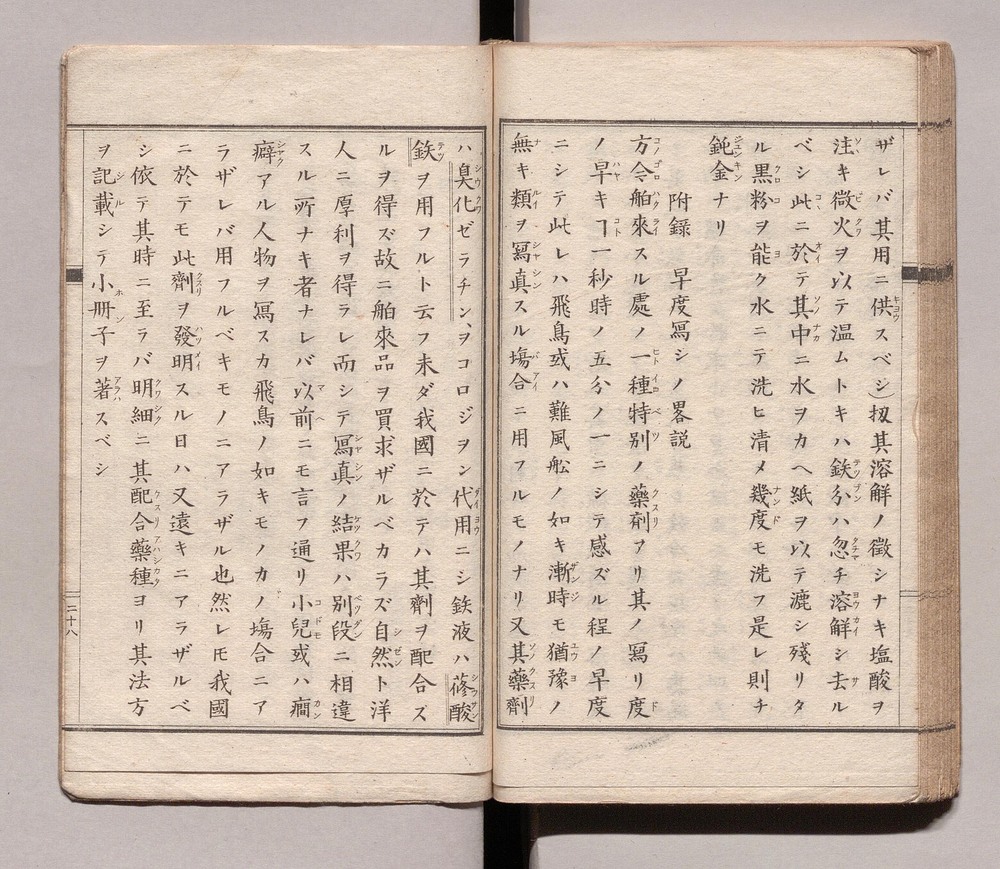 ザレバ其用ニ供スベシ)扨其溶解ノ徵シナキ塩酸ヲ
注キ微火ヲ以テ温ムトキハ鉄分ハ忽チ溶解シ去ル
ベシ此ニ於テ其中ニ水ヲカヘ紙ヲ以テ漉シ殘リタ
ル黒粉ヲ能ク水ニテ洗ヒ清メ幾度モ洗フ是レ則チ
鈍金ナリ
附録 早度寫シノ畧説
方令舶來スル處ノ一種特別ノ藥劑アリ其ノ寫リ度
ノ早キヿ一秒時ノ五分ノ一ニシテ感ズル程ノ早度
ニシテ此レハ飛鳥或ハ難風舩ノ如キ漸時モ猶豫ノ
無キ類ヲ寫真スル塲合ニ用フルモノナリ又其藥劑
ハ臭化ゼラチン、ヲコロジヲン代用ニシ鉄液ハ蓚酸
鉄ヲ用フルト云フ未ダ我國ニ於テハ其劑ヲ配合ズ
ルヲ得ズ故ニ舶來品ヲ買求ザルベカラズ自然ト洋
人ニ厚利ヲ得ラレ而シテ寫真ノ結果ハ別段ニ相違
スル所ナキ者ナレバ以前ニモ言フ通リ小兒或ハ癇
癖アル人物ヲ寫スカ飛鳥ノ如キモノカノ塲合ニア
ラザレバ用フルベキモノニアラザル也然レ𪜈我國
ニ於テモ此劑ヲ發明スル日ハ又遠キニアラザルベ
シ依テ其時ニ至ラバ明細ニ其配合藥種ヨリ其法方
ヲ記載シテ小冊子ヲ著スベシ
二十八